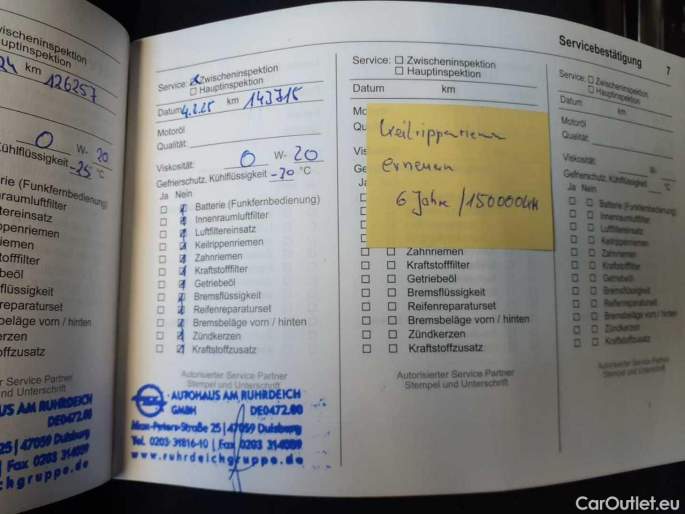 wischeninspektion
Hauptinspektion
24 km 126257
0 W- 20
Kühlflüssigkeit -25 °C
terie (Funkfernbedienung)
enraumluftfilter
tereinsatz
rippenriemen
riemen
offfilter
eöl
flüssigkeit
reparaturset
beläge vorn / hinten
zen
ffzusatz
er Service Partner
und Unterschrift
US AM RUHRDEICH
DE0472.00
25 | 47059 Duisburg
| Fax 0203 314059
chgruppe.de
Service: ☒ Zwischeninspektion
☐ Hauptinspektion
Datum 4.2.25 km 143715
Motoröl
Qualität:
Viskosität: 0 W- 20
Gefrierschutz, Kühlflüssigkeit -20 °C
Ja Nein
Batterie (Funkfernbedienung)
Innenraumluftfilter
Luftfiltereinsatz
Keilrippenriemen
Zahnriemen
Kraftstofffilter
Getriebeöl
Bremsflüssigkeit
Reifenreparaturset
Bremsbeläge vorn / hinten
Zündkerzen
Kraftstoffzusatz
Autorisierter Service Partner
Stempel und Unterschrift
AUTOHAUS AM RUHRDEICH
GMBH DE0472.00
Max-Peters-Straße 25 | 47059 Duisburg
Tel. 0203-31816-10 | Fax 0203 314059
www.ruhrdeichgruppe.de
Servicebestätigung 7
Service: ☐ Zwischeninspektion
☐ Hauptinspektion
Datum km
Mo
Qu
Vis
Gef
Ja
Keilrippenriemen
erneuern
6 Jahre / 150000km
Zahnriemen
Kraftstofffilter
Getriebeöl
Bremsflüssigkeit
Reifenreparaturset
Bremsbeläge vorn / hinten
Zündkerzen
Kraftstoffzusatz
Autorisierter Service Partner
Stempel und Unterschrift
Service: ☐ Zwischeninspektion
☐ Hauptinspektion
Datum km
Motoröl
Qualität:
Viskosität: W-
Gefrierschutz, Kühlflüssigkeit °C
Ja Nein
Batterie (Funkfernbedienung)
Innenraumluftfilter
Luftfiltereinsatz
Keilrippenriemen
Zahnriemen
Kraftstofffilter
Getriebeöl
Bremsflüssigkeit
Reifenreparaturset
Bremsbeläge vorn / hinten
Zündkerzen
Kraftstoffzusatz
Autorisierter Service Partner
Stempel und Unterschrift
CarOutlet.eu